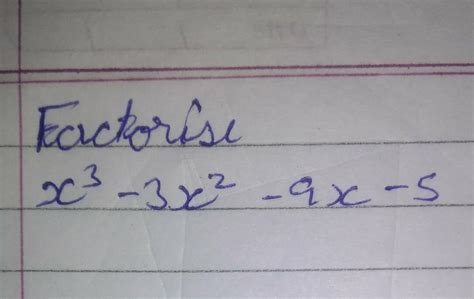 Factorise
x³ - 3x² - 9x - 5